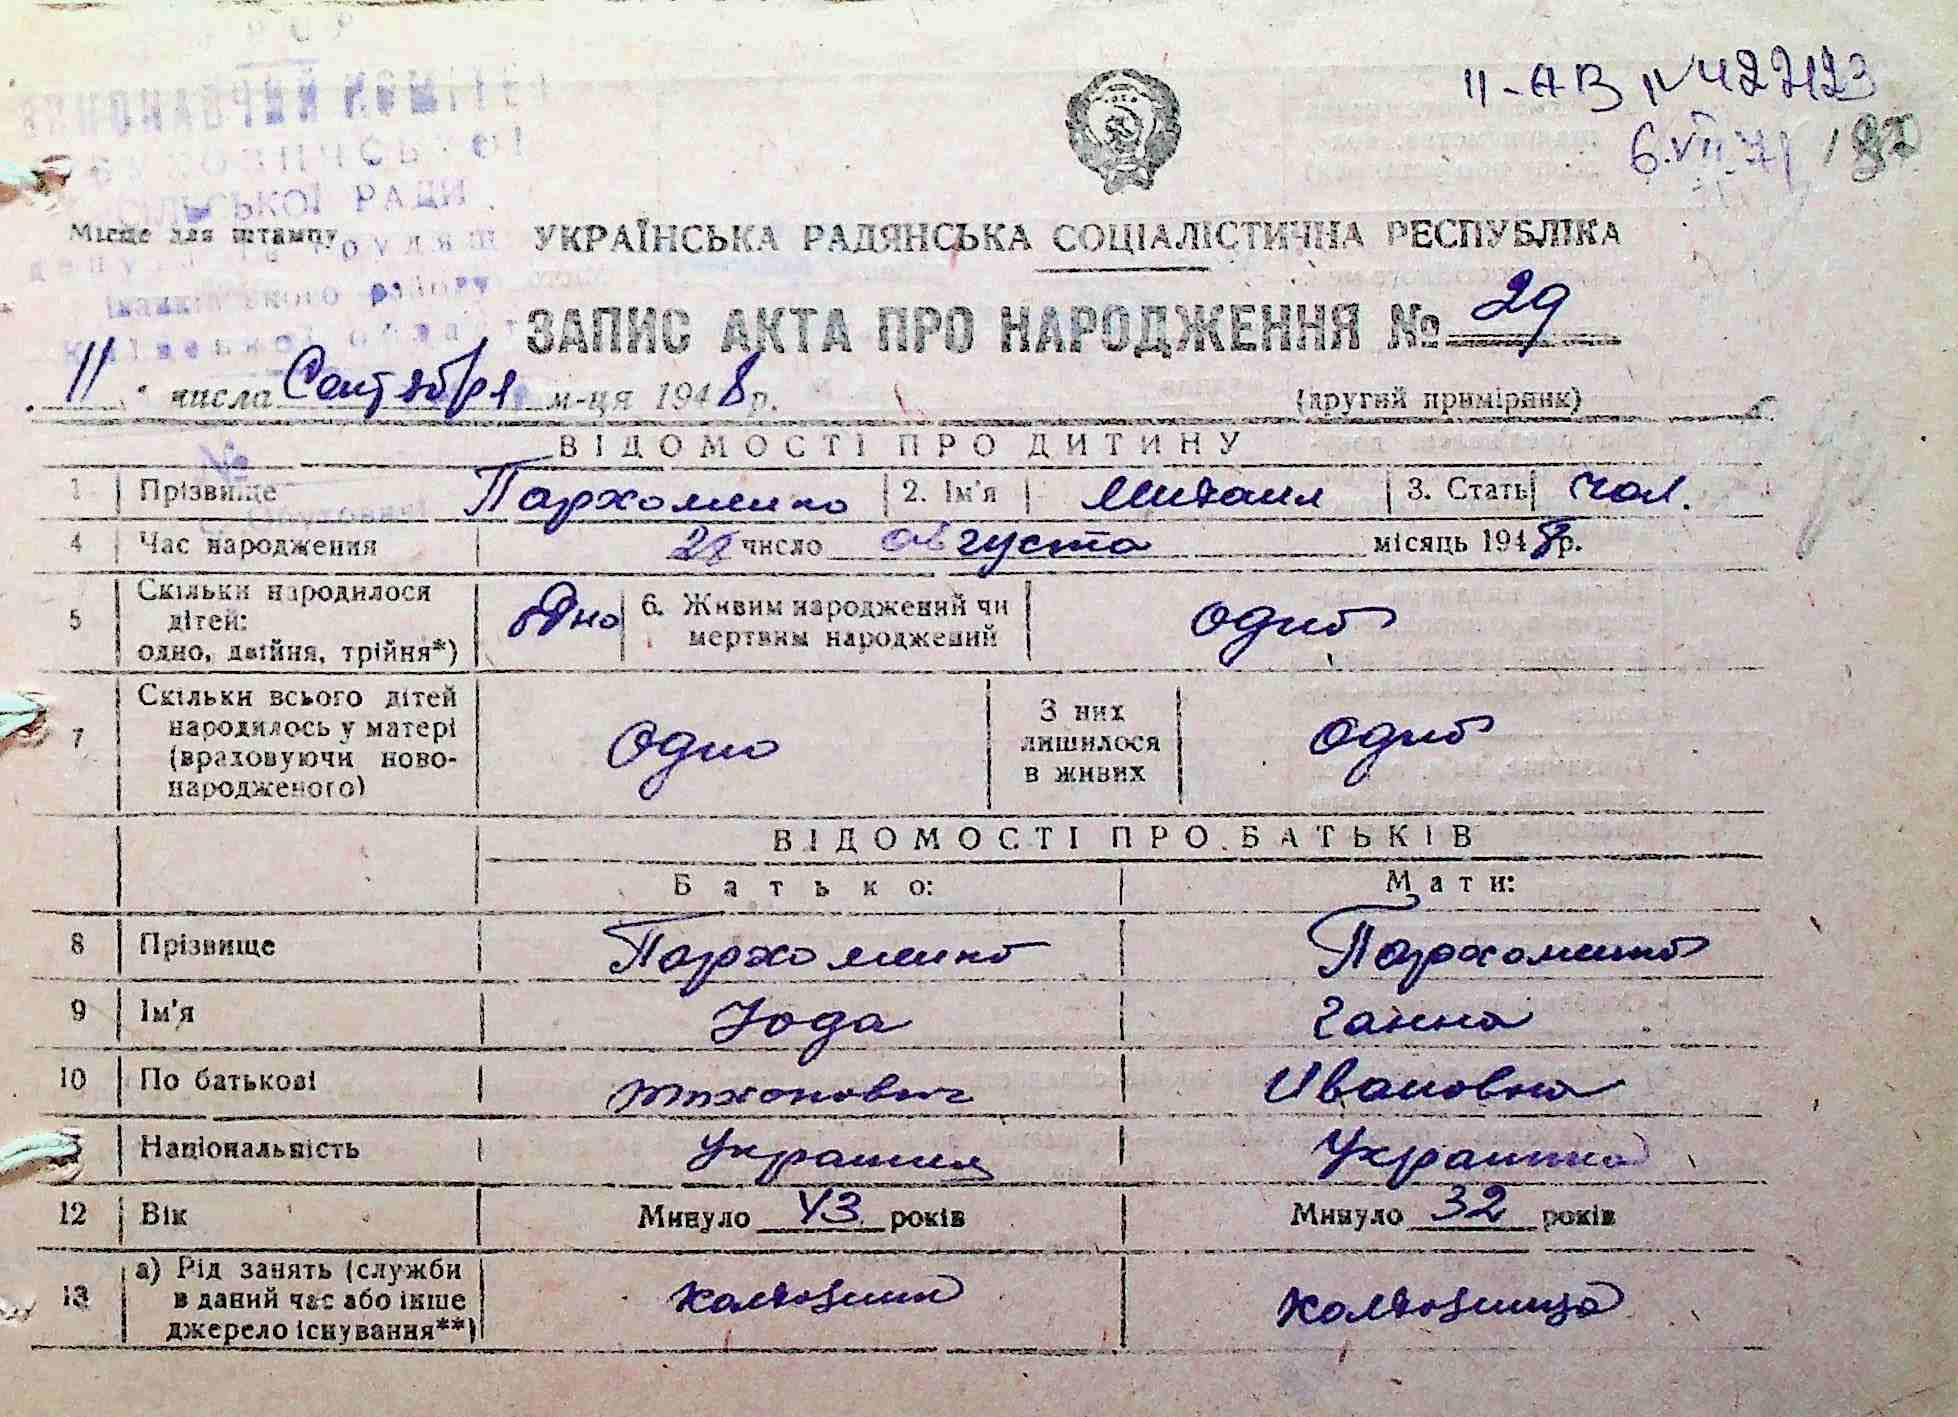 II-АВ №427123
6.VII.71
ВИКОНАВЧИЙ КОМІТЕТ
СІЛЬСЬКОЇ РАДИ
Місце для штампу
УКРАЇНСЬКА РАДЯНСЬКА СОЦІАЛІСТИЧНА РЕСПУБЛІКА
району
ЗАПИС АКТА ПРО НАРОДЖЕННЯ № 29
11 числа Сентября м-ця 1948 р.
(другий примірник)
ВІДОМОСТІ ПРО ДИТИНУ
№
1 Прізвище Пархоменко 2. Ім'я Михаил 3. Стать чол.
4 Час народження 28 число августа місяць 1948 р.
5 Скільки народилося дітей: одно, двійня, трійня*) одно 6. Живим народжений чи мертвим народжений одно
7 Скільки всього дітей народилось у матері (враховуючи новонародженого) одно З них лишилося в живих одно
ВІДОМОСТІ ПРО БАТЬКІВ
Батько: Мати:
8 Прізвище Пархоменко Пархоменко
9 Ім'я Ганна
10 По батькові Тихонович Ивановна
Національність Украинец Украинка
12 Вік Минуло 43 років Минуло 32 років
13 а) Рід занять (служби в даний час або інше джерело існування**) колхозник колхозница